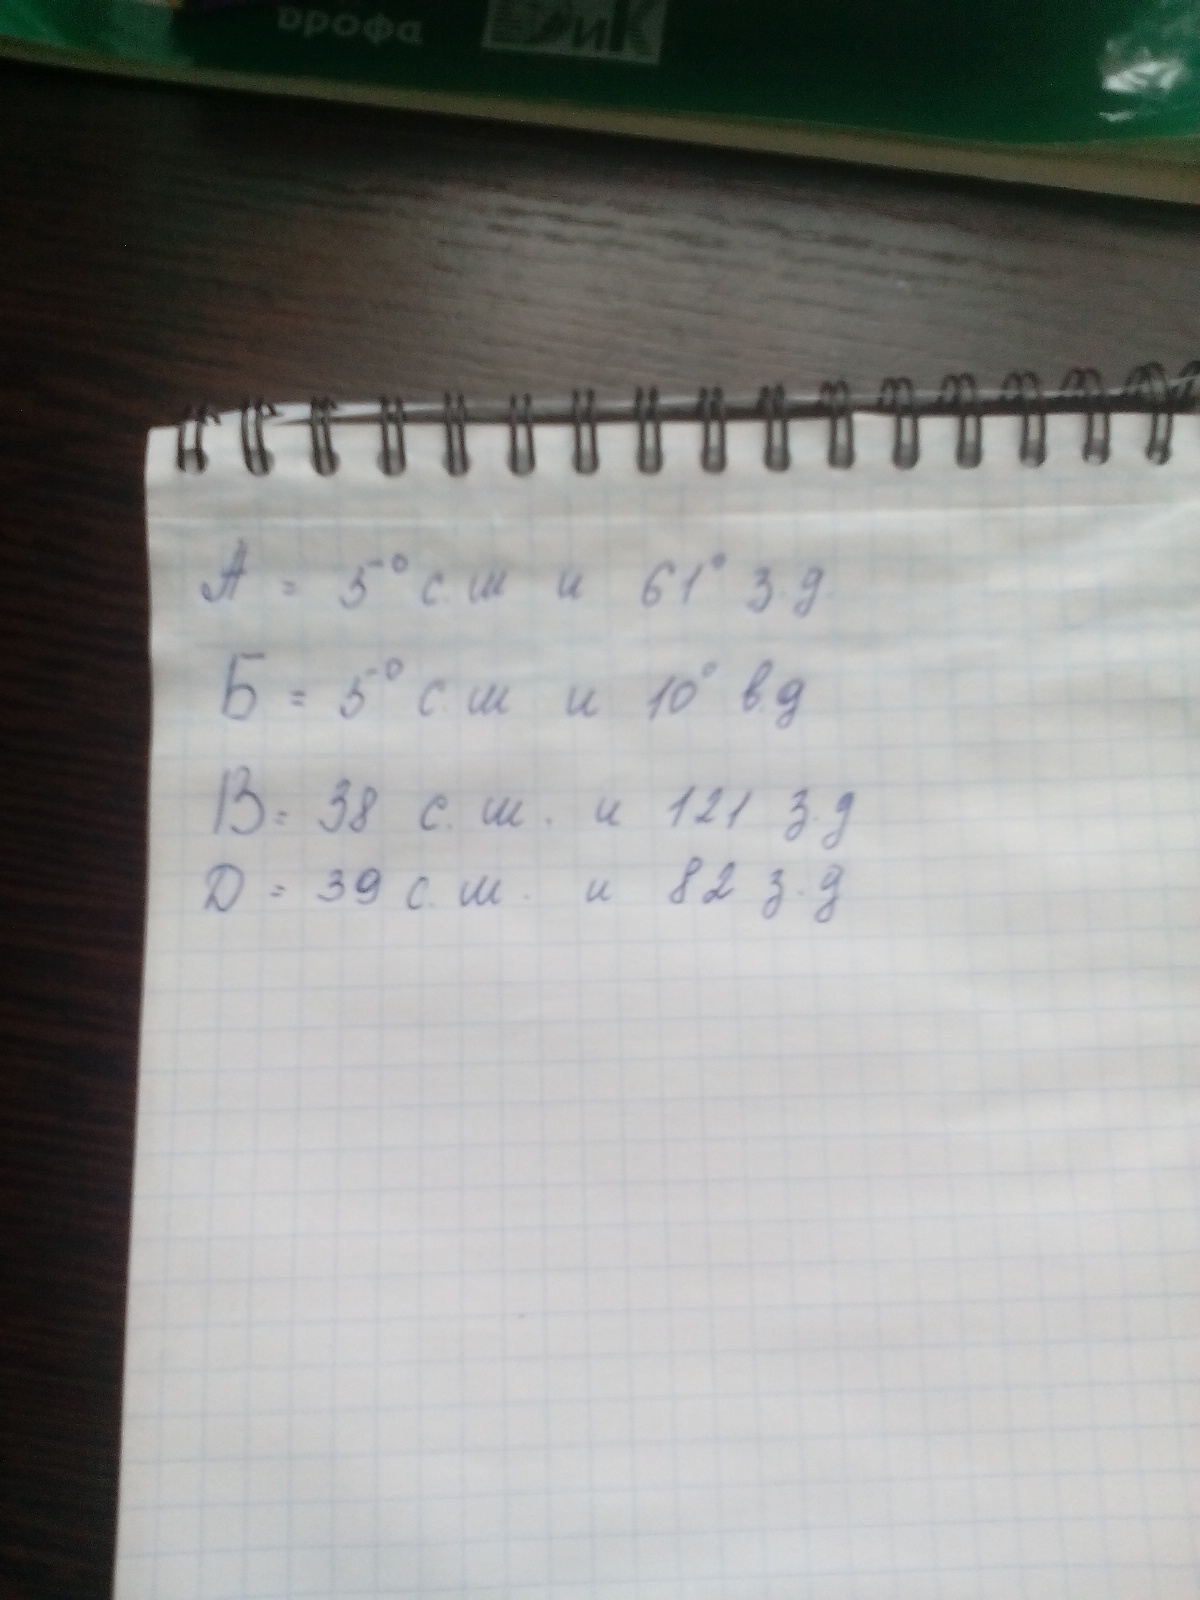 дрофа
ДиК
А = 5° с.ш и 61° з.д.
Б = 5° с.ш и 10° в.д
В = 38 с. ш. и 121 з.д
D = 39 с. ш. и 82 з.д